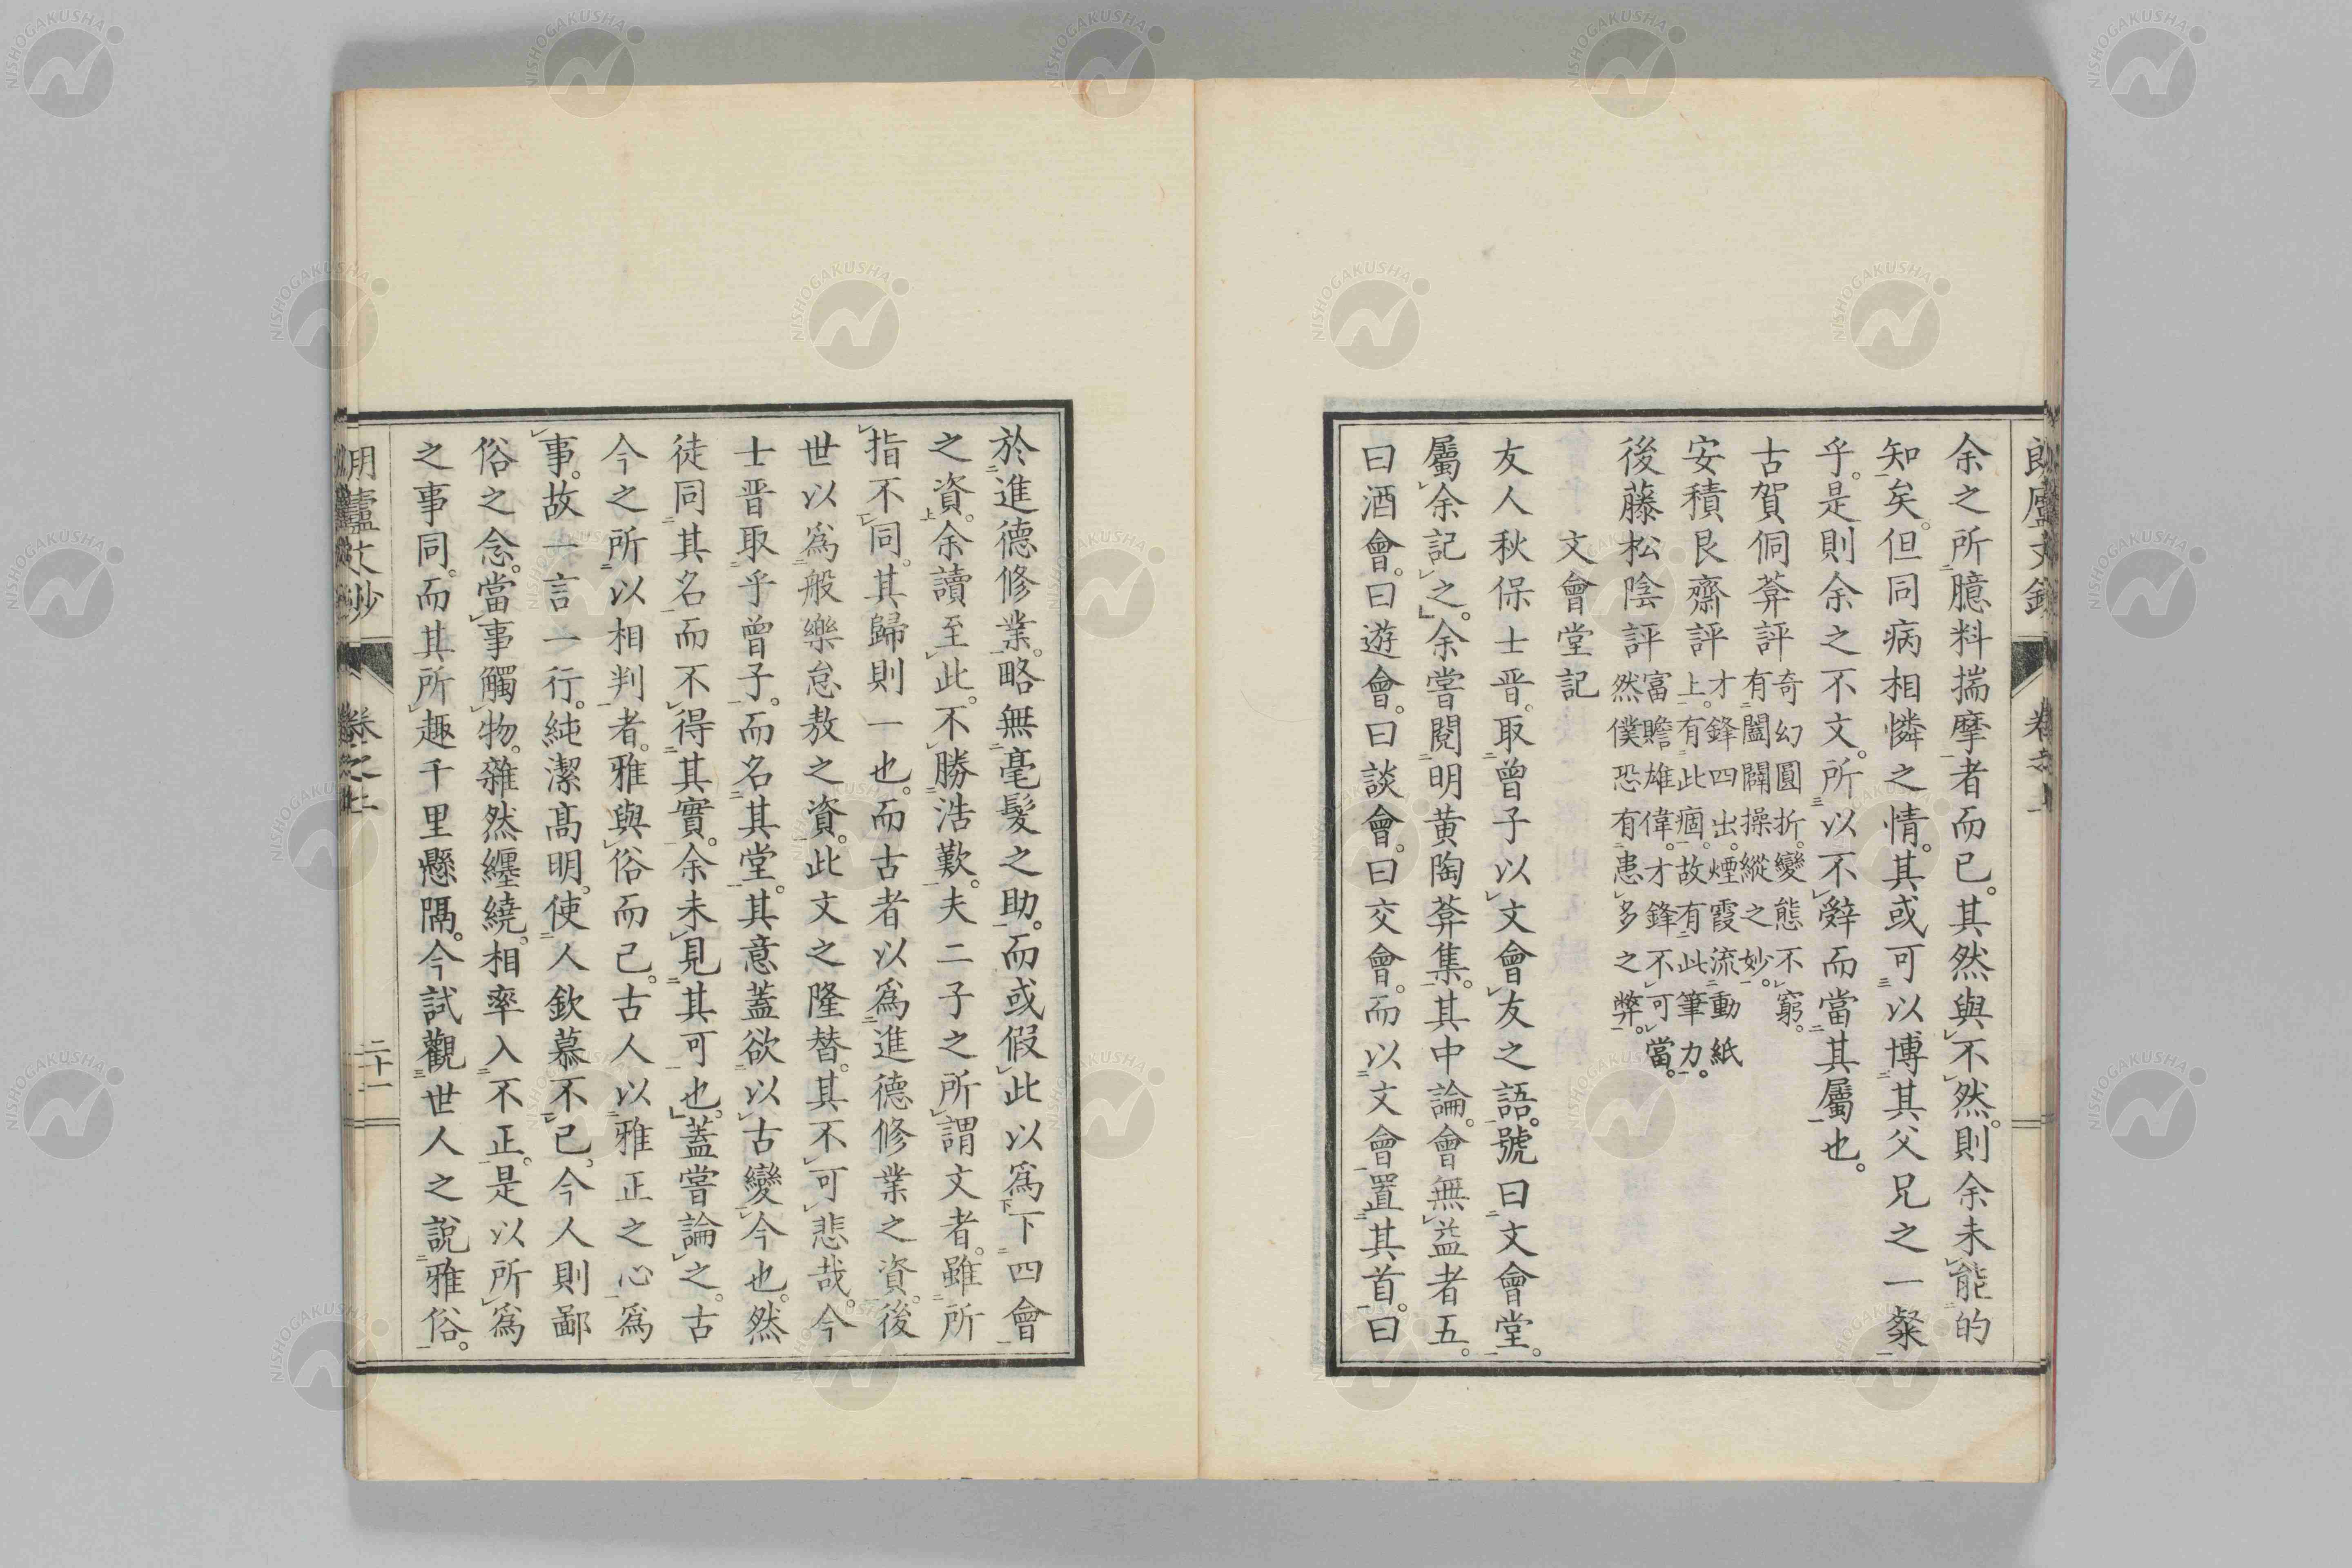 余之所臆料揣摩者而已。其然與不然。則余未能的
知矣。但同病相憐之情。其或可以博其父兄之一粲
乎。是則余之不文。所以不辤而當其屬也。
古賀侗菴評 奇幻圓折。變態不窮。
有闔闢操縱之妙。
安積艮齋評 才鋒四出。煙霞流動紙
上。有此痼。故有此筆力。
後藤松陰評 富贍雄偉。才鋒不可當。
然僕恐有患多之弊。
文會堂記
友人秋保士晋。取曾子以文會友之語。號曰文會堂。
屬余記之。余嘗閱明黄陶菴集。其中論。會無益者五。
曰酒會。曰遊會。曰談會。曰交會。而以文會置其首。曰
於進德修業。略無毫髮之助。而或假此以爲下四會
之資。余讀至此。不勝浩歎。夫二子之所謂文者。雖所
指不同。其歸則一也。而古者以爲進德修業之資。後
世以爲般樂怠敖之資。此文之隆替。其不可悲哉。今
士晋取乎曾子。而名其堂。其意蓋欲以古變今也。然
徒同其名。而不得其實。余未見其可也。蓋嘗論之。古
今之所以相判者。雅與俗而已。古人以雅正之心爲
事。故一言一行。純潔高明。使人欽慕不已。今人則鄙
俗之念。當事觸物。雜然纒繞。相率入不正。是以所爲
之事同。而其所趣千里懸隔。今試觀世人之說雅俗。
卷之上
二十一
NISHOGAKUSHA